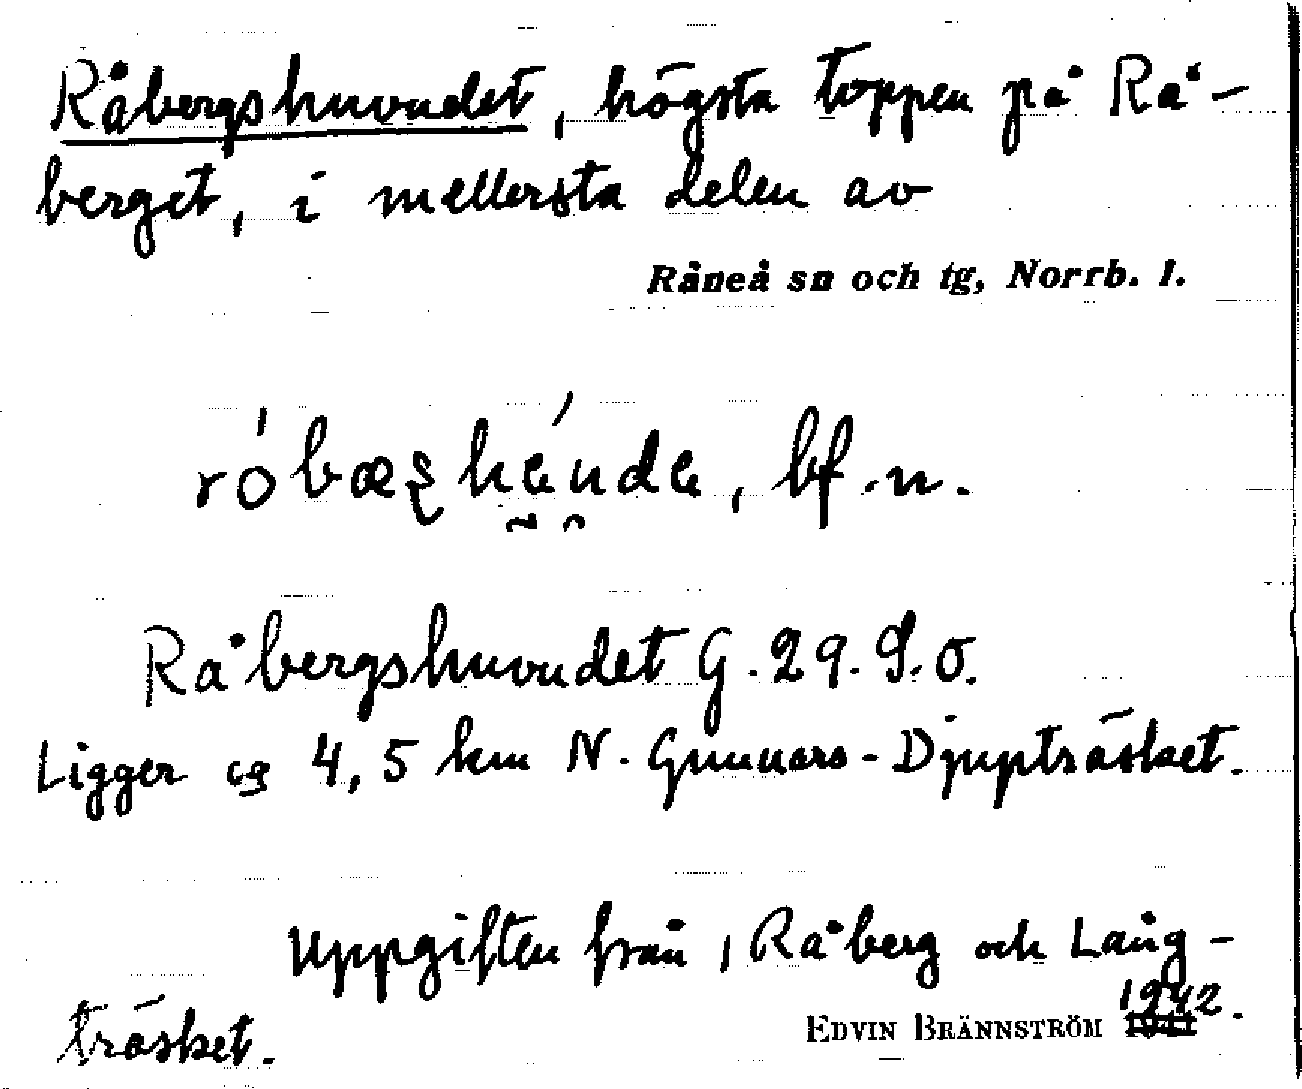 Råbergshuvudet, högsta toppen på Rå-
berget, i mellersta delen av
Råneå sn och tg, Norrb. l.
bf. n.
Råbergshuvudet G. 29. d. o.
Ligger ca 4,5 km N. Gunnars-Djupträsket.
Uppgiften från 1 Råberg och Lång-
träsket.
EDVIN BRÄNNSTRÖM 1942.